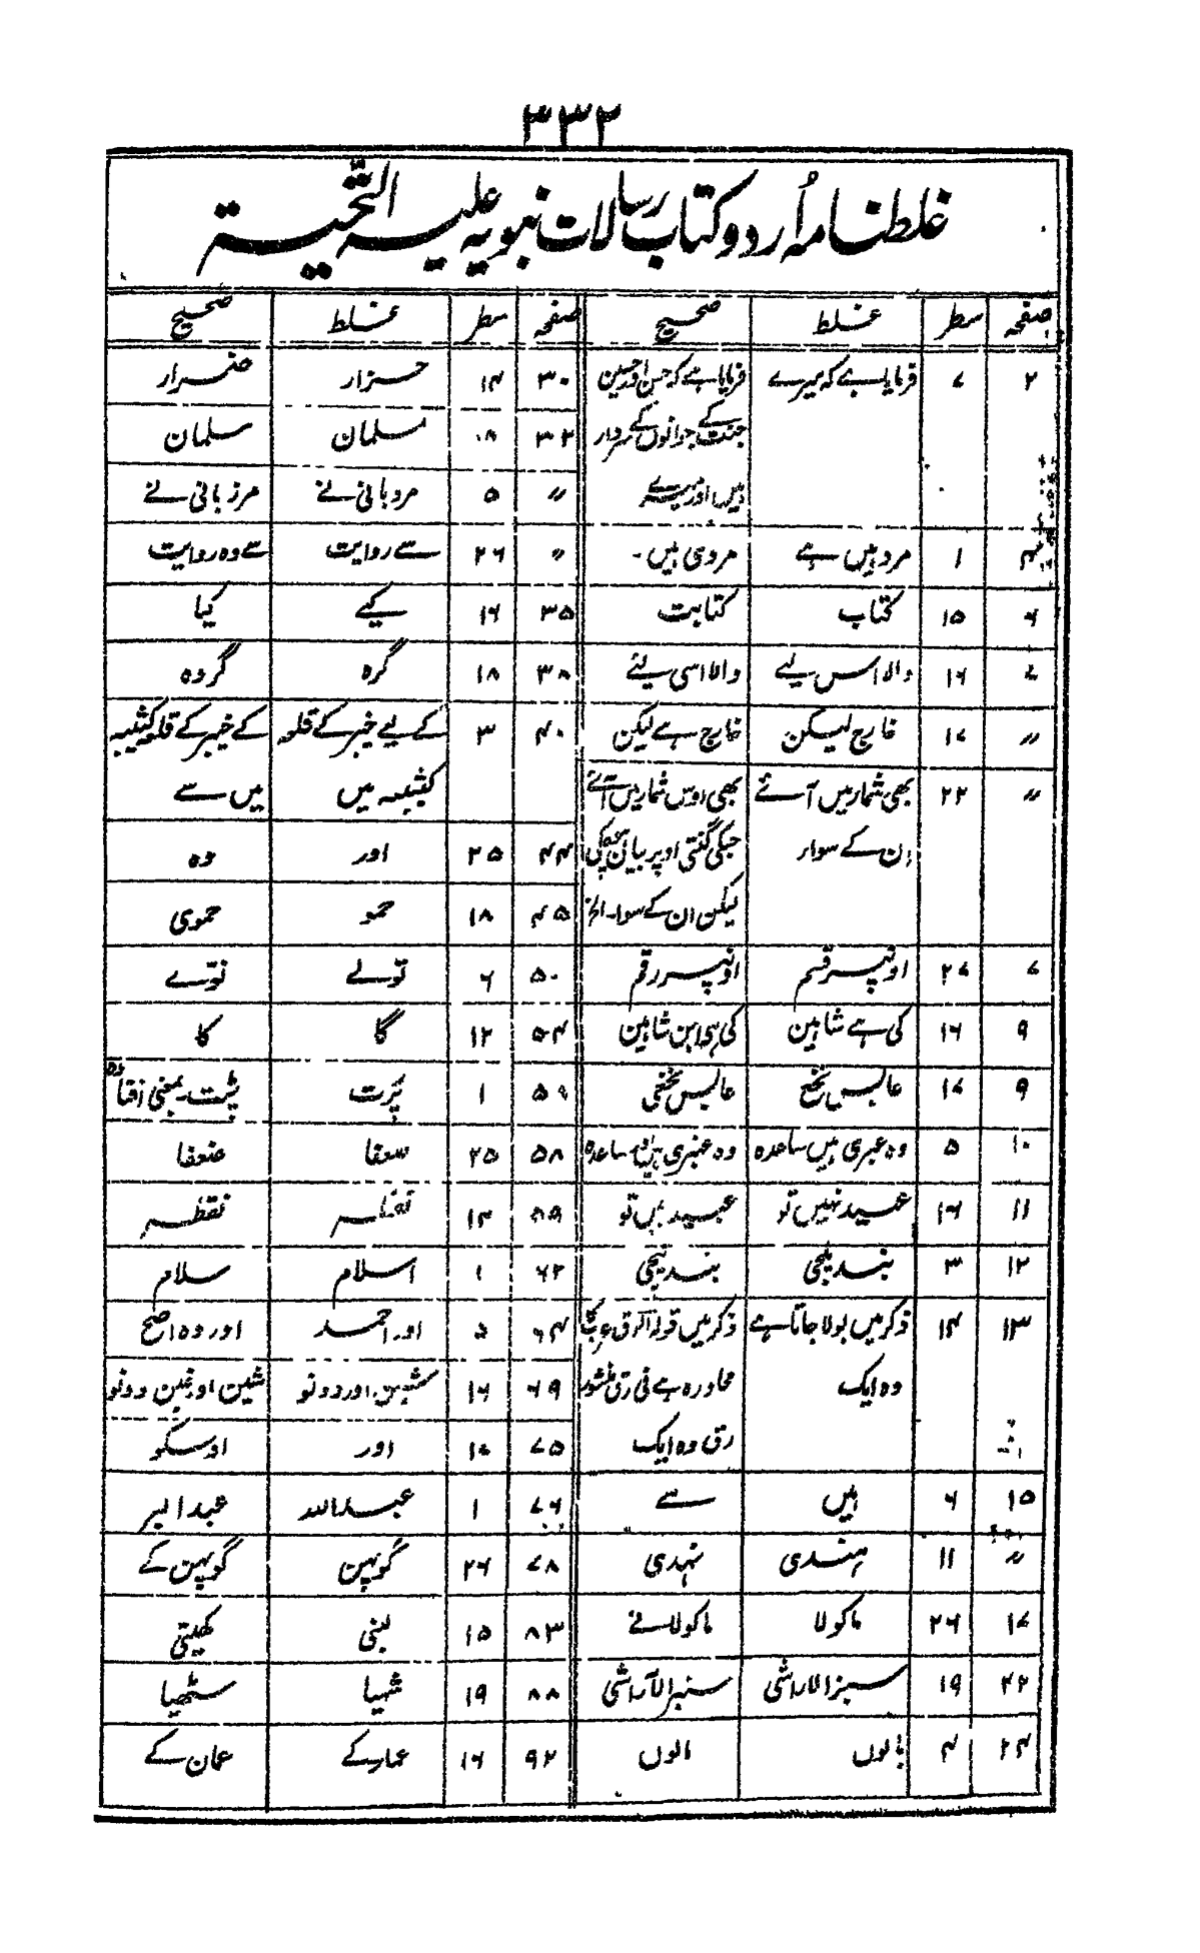 ۳۳۲
غلطنامہ اُردو کتاب رسالات نبویہ علیہ التحیۃ
صفحہ سطر غلط صحیح
۲ ۷ فرمایا ہے کہ میرے فرمایا ہے کہ حسن اور حسین
جنت کے جوانوں کے سردار
ہیں اور میرے
۴ ۱ مرد ہیں ہے مروی ہیں۔
۶ ۱۵ کتاب کتابت
۷ ۱۶ والا اس لیے والا اسی لئے
〃 ۱۷ خارج لیکن خارج ہے لیکن
〃 ۲۲ بھی شمار میں آئے بھی اوس شمار میں آئے
ان کے سوار جنکی گنتی اوپر بیان ہو چکی
لیکن ان کے سوا۔ الخ
۷ ۲۷ اونپر قسم اونپر رقم
۹ ۱۶ کی ہے شاہین کی ہی ابن شاہین
۹ ۱۷ عابس نخع عابس نخعی
۱۰ ۵ وہ عبری ہیں ساعدہ وہ عنبری ہیں ساعدہ
۱۱ ۱۶ عبید نہیں تو عبید ہیں تو
۱۲ ۳ بند یلجی بند نیجی
۱۳ ۱۴ ذکر میں بولا جاتا ہے ذکر میں قولہ الرق عرب کا
وہ ایک محاورہ ہے فی رق منشور
رق وہ ایک
۱۵ ۶ ہیں سے
〃 ۱۱ ہندی نہدی
۱۷ ۲۶ ماکولا ماکولا نے
۲۲ ۱۹ سبز الاراشی سنبر الآراشی
۲۴ ۴ بالوں الوں
صفحہ سطر غلط صحیح
۳۰ ۱۴ حزار ضرار
۳۲ ۱۸ مسلمان سلمان
〃 ۵ مردبانی نے مرزبانی نے
〃 ۲۶ سے روایت سے وہ روایت
۳۵ ۱۶ کیے کیا
۳۸ ۱۸ گرہ گروہ
۴۰ ۳ کے لیے خیبر کے قلعہ کے خیبر کے قلعہ کثیبہ
کثیبہ میں میں سے
۴۴ ۲۵ اور وہ
۴۵ ۱۸ حمو حموی
۵۰ ۶ تولے نوّے
۵۴ ۱۲ گا کا
۵۹ ۱ پرت پثت بمعنی افتادہ
۵۸ ۲۵ سعفا ضعفا
۵۹ ۱۴ نقطہ
۶۲ ۱ اسلام سلام
۶۴ ۵ اور احمد اور وہ اصح
۶۹ ۱۶ شین اور دونو شین اور غین دونو
۷۵ ۱۷ اور اوسکو
۷۶ ۱ عبداللہ عبدالبر
۷۸ ۲۶ گوپہن گوپہن کے
۸۳ ۱۵ لبنی کھیتی
۸۸ ۱۹ شھیا سٹھیا
۹۲ ۱۶ عمار کے عمان کے